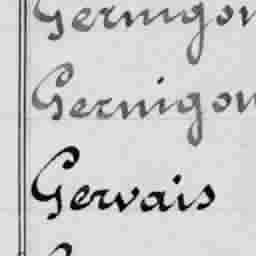 Gernigon
Gernigon
Gervais